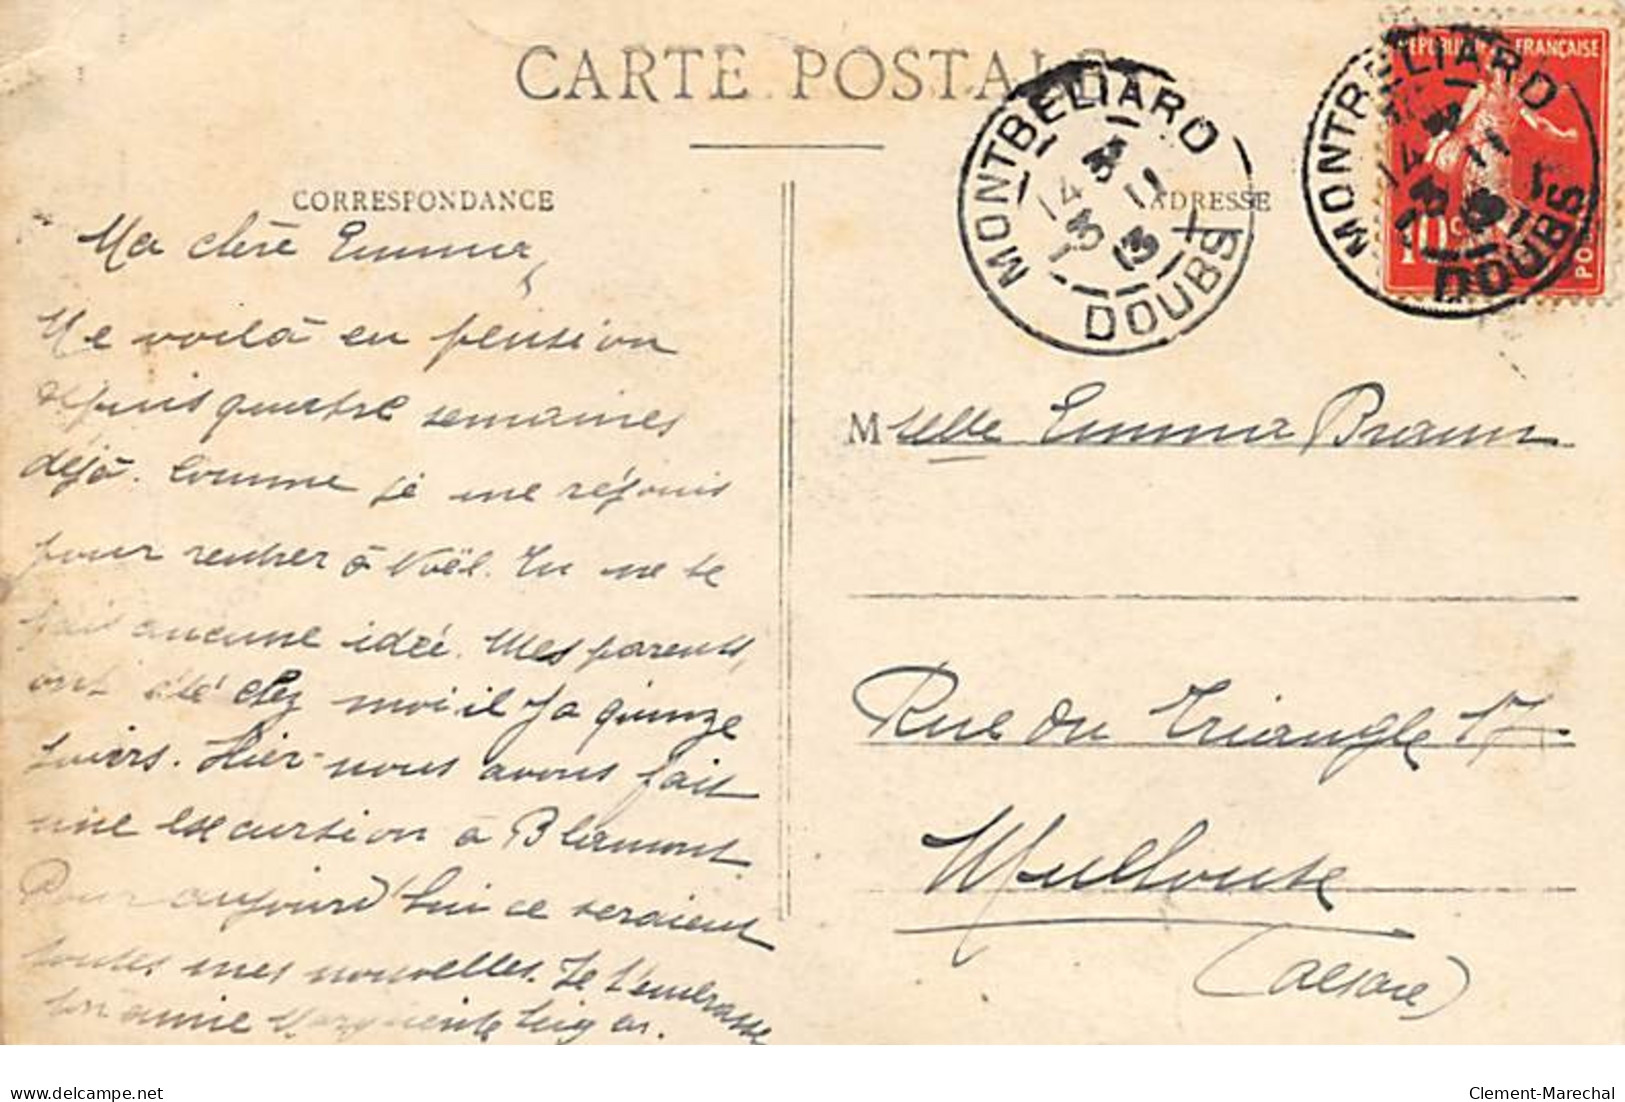 CARTE POSTALE
CORRESPONDANCE
ADRESSE
MONTBELIARD
14 3
3 11
13
DOUBS
REPUBLIQUE FRANÇAISE
10c
POSTES
MONTBELIARD
14
3 11
13
DOUBS
Ma chère Emma,
Me voilà en pension
depuis quatre semaines
déjà. Comme je me réjouis
pour rentrer à Noël. Tu ne te
fais aucune idée. Mes parents
ont été chez moi il y a quinze
jours. Hier nous avons fait
une excursion à Blamont
Pour aujourd'hui ce seraient
toutes mes nouvelles. Je t'embrasse
ton amie Marguerite
Mselle Emma Braun
Rue du Triangle 17.
Mulhouse
(Alsace)
delcampe.net
Clement-Marechal